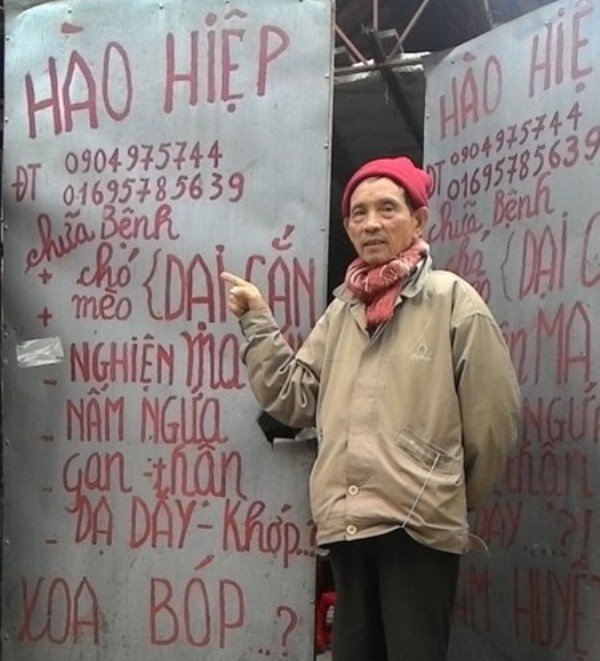 HÀO HIỆP
ĐT 0904975744
01695785639
chữa Bệnh
+ chó { DẠI CẮN
+ mèo
- NGHIỆN Ma
- NẤM NGỨA
- gan - thần
- DẠ DẦY - Khớp..?
XOA BÓP ..?
HÀO HIỆ
ĐT 0904975744
01695785639
chữa Bệnh
chó { DẠI C
MA
NGỨ
thần
...?!
HUYỆ